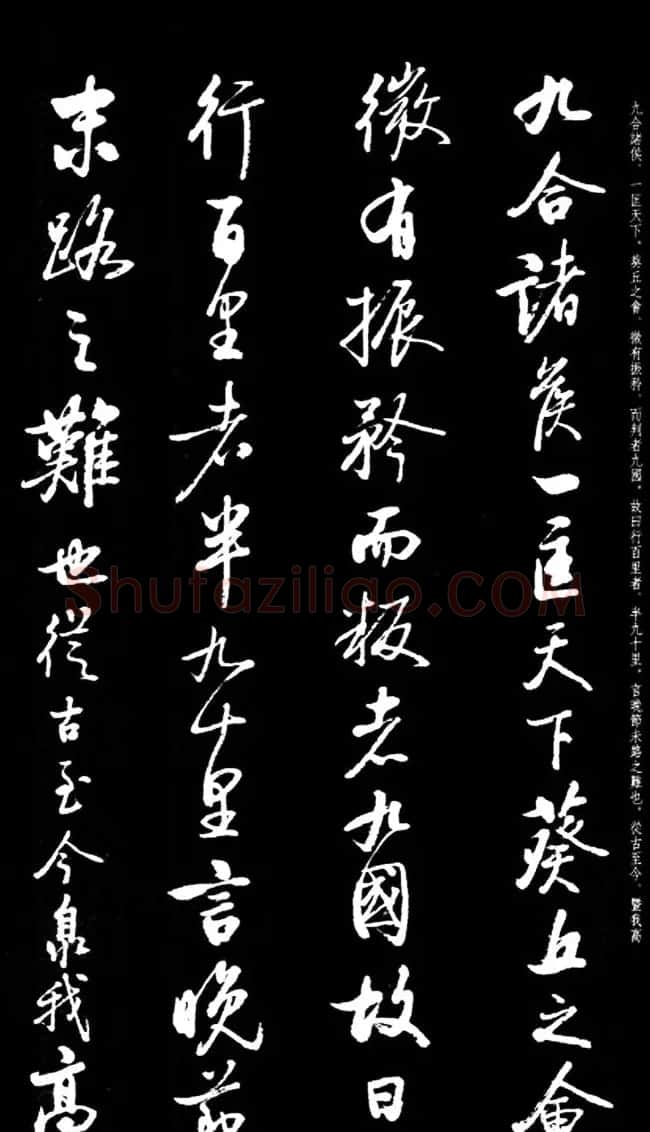 九合諸侯、一匡天下。葵丘之會、微有振矜、而判者九國。故曰行百里者、半九十里。言晚節末路之難也。從古至今、曁我高
九合諸侯一匡天下葵丘之會
微有振矜而叛者九國故曰
行百里者半九十里言晚節
末路之難也從古至今臮我高
Shufaziligo.com